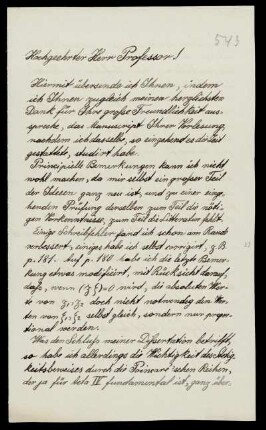 543
Hochgeehrter Herr Professor!
Hiermit übersende ich Ihnen, indem
ich Ihnen zugleich meinen herzlichsten
Dank für Ihre große Freundlichkeit aus-
spreche, das Manuscript Ihrer Vorlesung,
nachdem ich dasselbe, so eingehend es die Zeit
gestattete, studirt habe.
Principielle Bemerkungen kann ich nicht
wohl machen, da mir selbst ein großer Teil
der Ideen ganz neu ist, und zu einer einge-
henden Prüfung derselben zum Teil die nöti-
gen Vorkenntnisse, zum Teil die Litteratur fehlt.
Einige Schreibfehler fand ich schon am Rande
verbessert, einiges habe ich selbst corrigirt, z. B.
p. 181. Auf p. 180 habe ich die letzte Bemer-
kung etwas modificirt, mit Rücksicht darauf,
daß, wenn wird, die absoluten Wer-
te von doch nicht notwendig den Wer-
ten von selbst gleich, sondern nur propor-
tional werden.
Was den Schluß meiner Dissertation betrifft,
so habe ich allerdings die Wichtigkeit des Stetig-
keitsbeweises durch die Poincaré'schen Reihen,
der ja für Acta IV fundamental ist, ganz über-